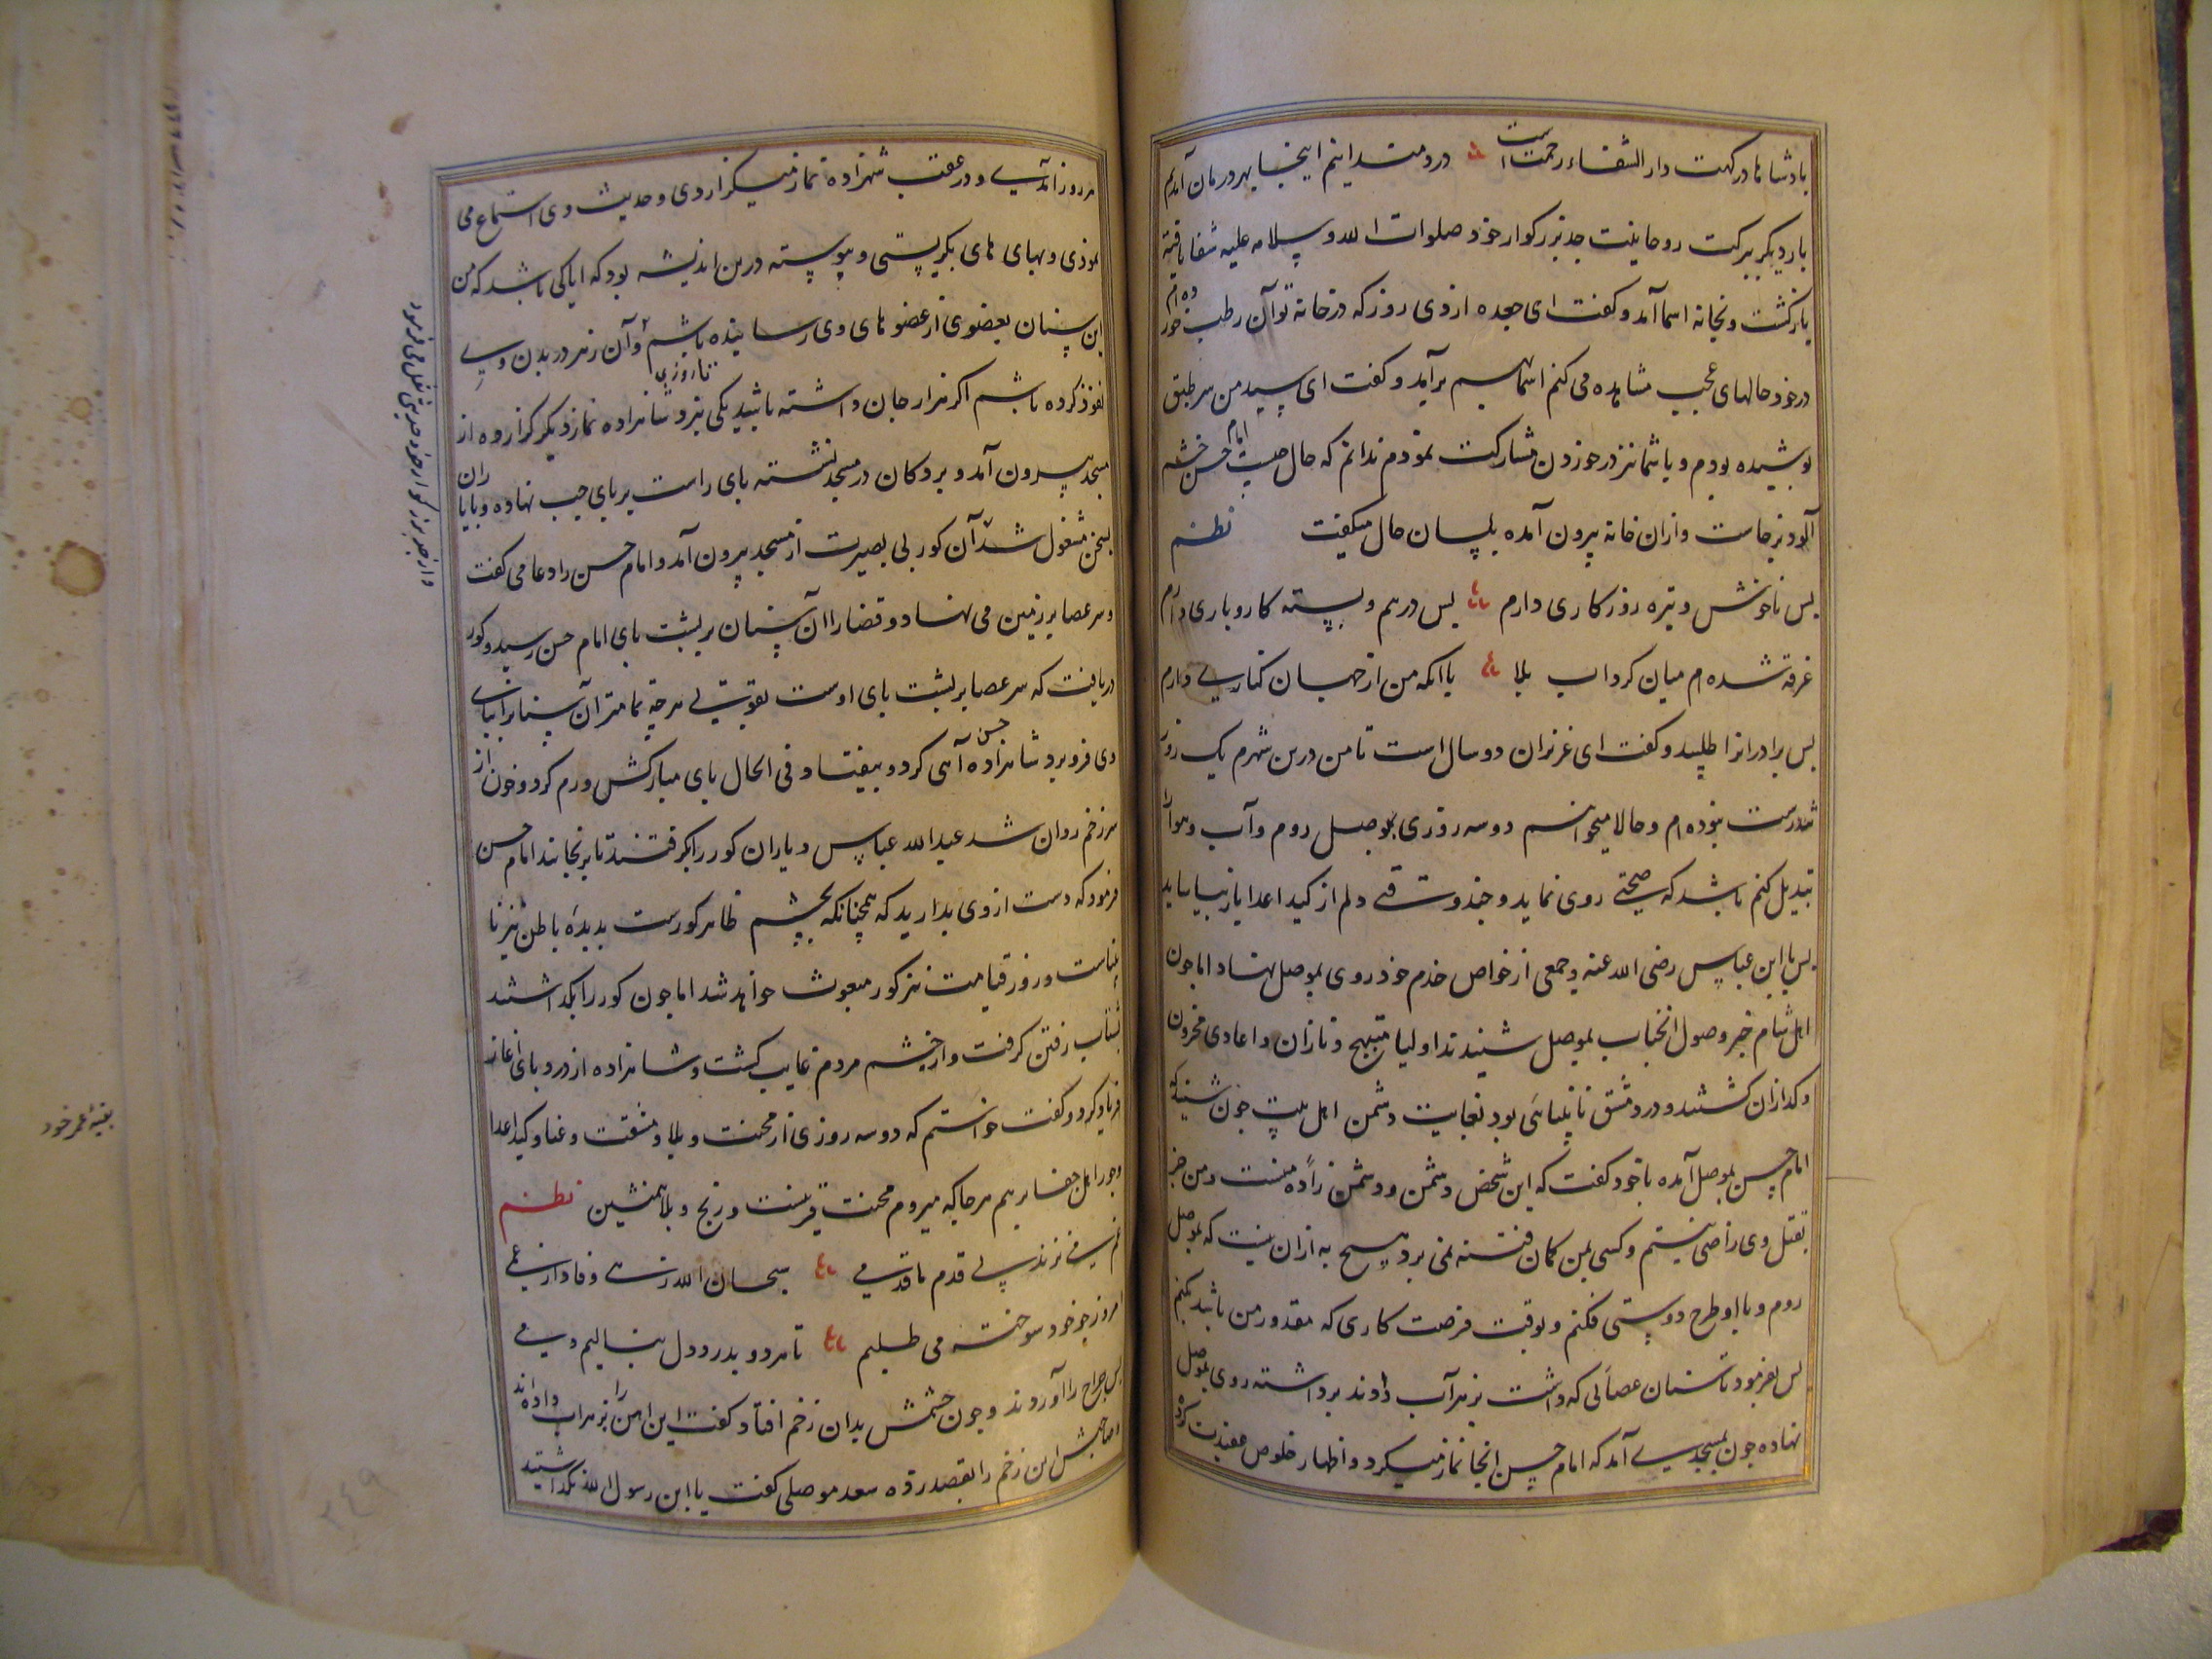 بادشاها درکهت دار الشفاء رحمت است درد مندانیم اینجا بهر درمان آمدیم
بار دیکر ببرکت روحانیت جد بزرکوار خود صلوات الله وسلامه علیه شفا یافته
بازکشت وبخانه اسما آمد وکفت ای جعده ازوی روز که در خانه تو آن رطب خورده ام
در خود حالهای عجیب مشاهده می کنم اسما بهم برآمد وکفت ای سید من سر طبق
بوشیده بودم وباشما نیز در خوردن مشارکت نمودم ندانم که حال چیست امام حسن خشم
آلود برخاست وازان خانه بیرون آمده بلسان حال میکفت نظم
بس ناخوش وتیره روزکاری دارم بس درهم وبسته کار وباری دارم
غرقه شده ام میان کرداب بلا با انکه من از جهان کناری دارم
بس برادرانرا طلبید وکفت ای عزیزان دو سال است تا من درین شهرم یک روز
تندرست نبوده ام وحالا میخواهم دو سه روزی بموصل روم وآب وهوا را
تبدیل کنم باشد که صحتی روی نماید وچند وقتی دلم از کید اعدا باز بیاساید
بس با ابن عباس رضی الله عنه وجمعی از خواص خدم خود روی بموصل نهاد اما چون
اهل شام خبر وصول انجناب بموصل شنیدند اولیا مبتهج ونازان واعادی محزون
وکدازان کشتند ودر دمشق نابینائی بود بغایت دشمن اهل بیت چون شنید که
امام حسن بموصل آمده باخود کفت که این شخص دشمن ودشمن زاده منست ومن جز
بقتل وی راضی نیستم وکسی بمن کمان فتنه نمی برد هیچ به ازان نیست که بموصل
روم وبا او طرح دوستی فکنم وبوقت فرصت کاری که مقدور من باشد بکنم
بس بفرمود تا سنان عصائی که داشت بزهر آب دادند برداشته روی بموصل
نهاده چون بمسجدی آمد که امام حسن انجا نماز میکرد واظهار خلوص عقیدت کرده
هر روز آمدی ودر عقب شهزاده نماز میکزاردی وحدیث وی استماع می
نمودی وبهای های بکریستی وپیوسته درین اندیشه بود که ایا کی باشد که من
این سنان بعضوی از عضوهای وی رسانیده باشم وآن زهر در بدن وی
نفوذ کرده باشم اکر هزار جان داشته باشد یکی نبرد تا روزی شاهزاده نماز دیکر کزارده از
مسجد بیرون آمد وبر دکان در مسجد نشسته بای راست بر بای چپ نهاده وبا یاران
بسخن مشغول شد آن کور بی بصیرت از مسجد بیرون آمد وامام حسن را دعا می کفت
وسر عصا بر زمین می نهاد وقضارا آن سنان بر بشت بای امام حسن رسید وکور
دریافت که سر عصا بر بشت بای اوست بقوتی هر چه تمامتر آن سنانرا ببای
وی فرو برد شاهزاده حسن آهی کرد وبیفتاد فی الحال بای مبارکش ورم کرد وخون از
سر زخم روان شد عبد الله عباس ویاران کور را بکرفتند تا برنجانند امام حسن
فرمود که دست از وی بدارید که همچنانکه بچشم ظاهر کورست بدیده باطن نیز نا
بیناست وروز قیامت نیز کور مبعوث خواهد شد اما چون کور را بکذاشتند
بشتاب رفتن کرفت واز چشم مردم غایب کشت وشاهزاده از درد بای اغاز
فریاد کرد وکفت خواستم که دو سه روزی از محنت وبلا ومشقت وعنا وکید اعدا
وجور اهل جفا برهم هر جا که میروم محنت قرینست ورنج وبلا همنشین نظم
غم می نزند بی قدم ما قدمی سبحان الله زهی وفادار غمی
امروز چو خود سوخته می طلبیم تا هر دو بدرد دل بنالیم دمی
بس جراح را آوردند وچون چشمش بدان زخم افتاد کفت این اهن را بزهر اب داده اند
وصاحبش این زخم را بقصد زده سعد موصلی کفت یا ابن رسول الله بکذاشتید
واز جد بزرکوار خود حدیثی نقل می فرمود
بقیهٔ عمر خود
۲۴۹